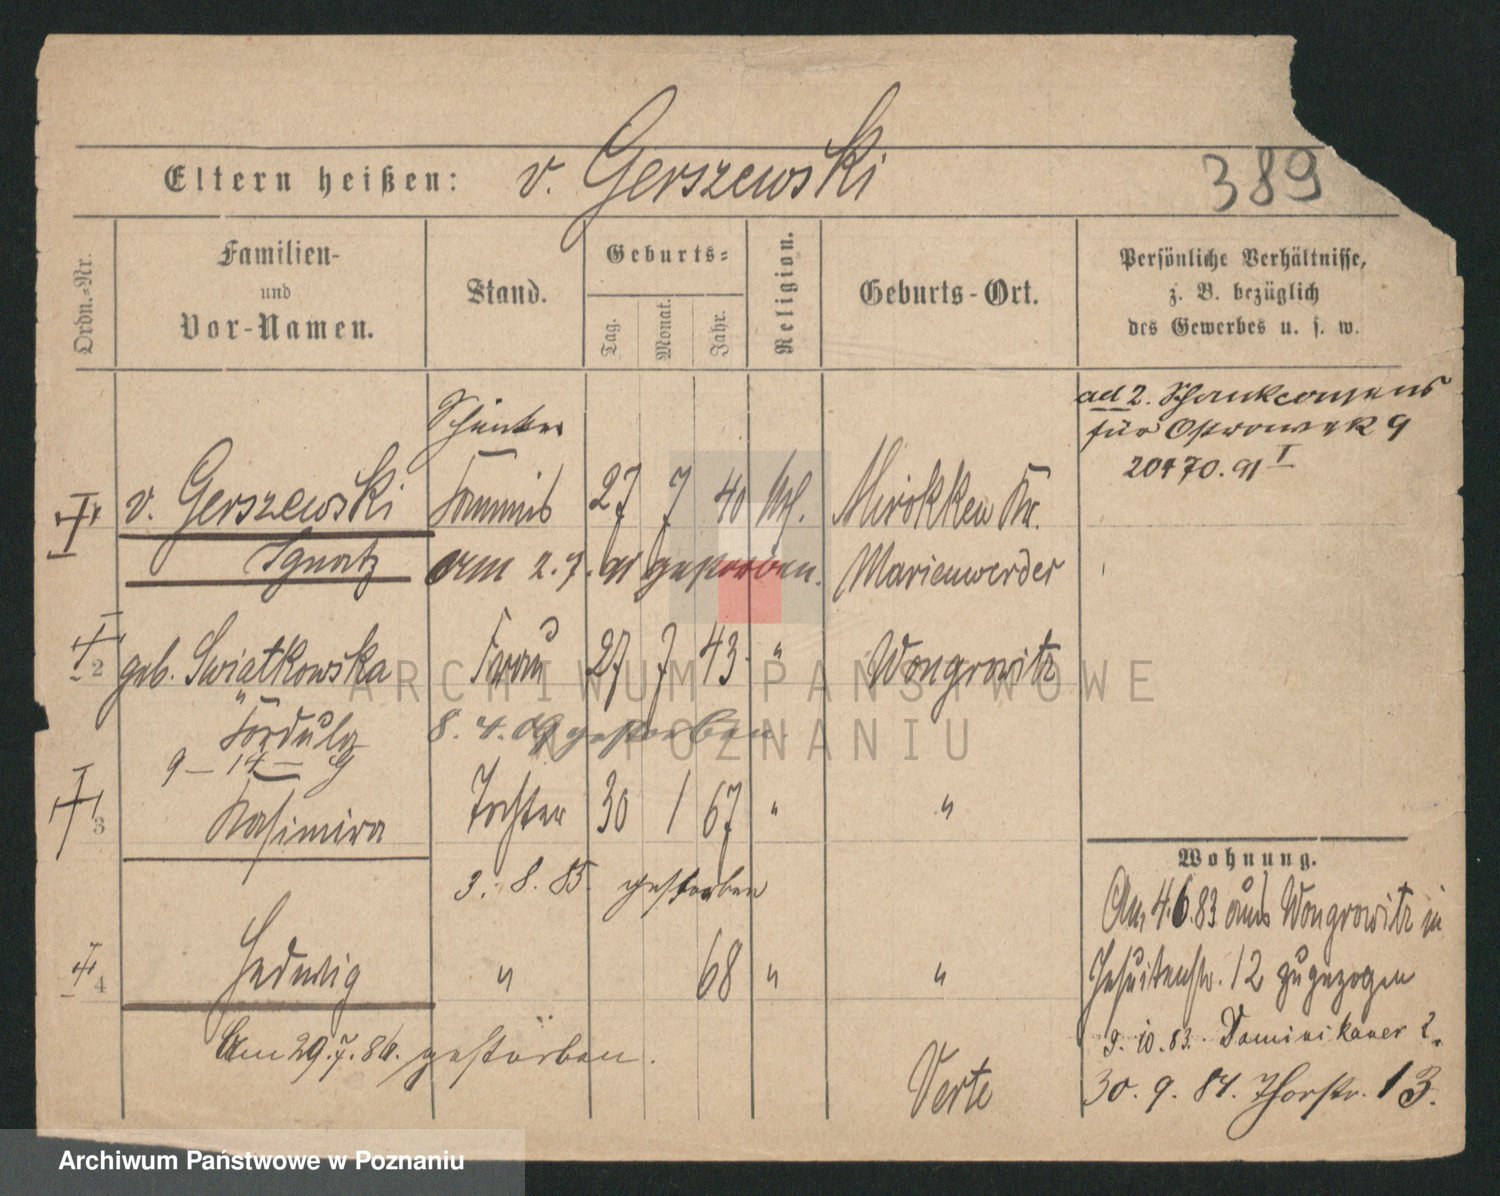 Eltern heißen: v. Gerszewski
389
Ordn.-Nr.
Familien-
und
Vor-Namen.
Stand.
Geburts-
Tag. Monat. Jahr.
Religion.
Geburts-Ort.
Persönliche Verhältnisse,
z. B. bezüglich
des Gewerbes u. s. w.
ad 2. Schankconsens
für Ostrowek 9
20470. 91 I
Schänker
v. Gerszewski 27 7 40 kth. Mirokken Kr.
Ignatz am 2. 7. 91 gestorben. Marienwerder
2 geb. Swiatkowska Frau 27 7 43 " Wongrowitz
8. 4. 09 gestorben
9 - 14 - 9
3 Kasimira Tochter 30 1 67 " "
3. 8. 85. gestorben
4 Hedwig " 68 " "
Am 29. 7. 86. gestorben.
Verte
Wohnung.
Am 4.6.83 aus Wongrowitz in
Jesuitenstr. 12 zugezogen
9. 10. 83. Dominikaner 2.
30. 9. 84. Thorstr. 13.
ARCHIWUM PAŃSTWOWE
W POZNANIU
Archiwum Państwowe w Poznaniu